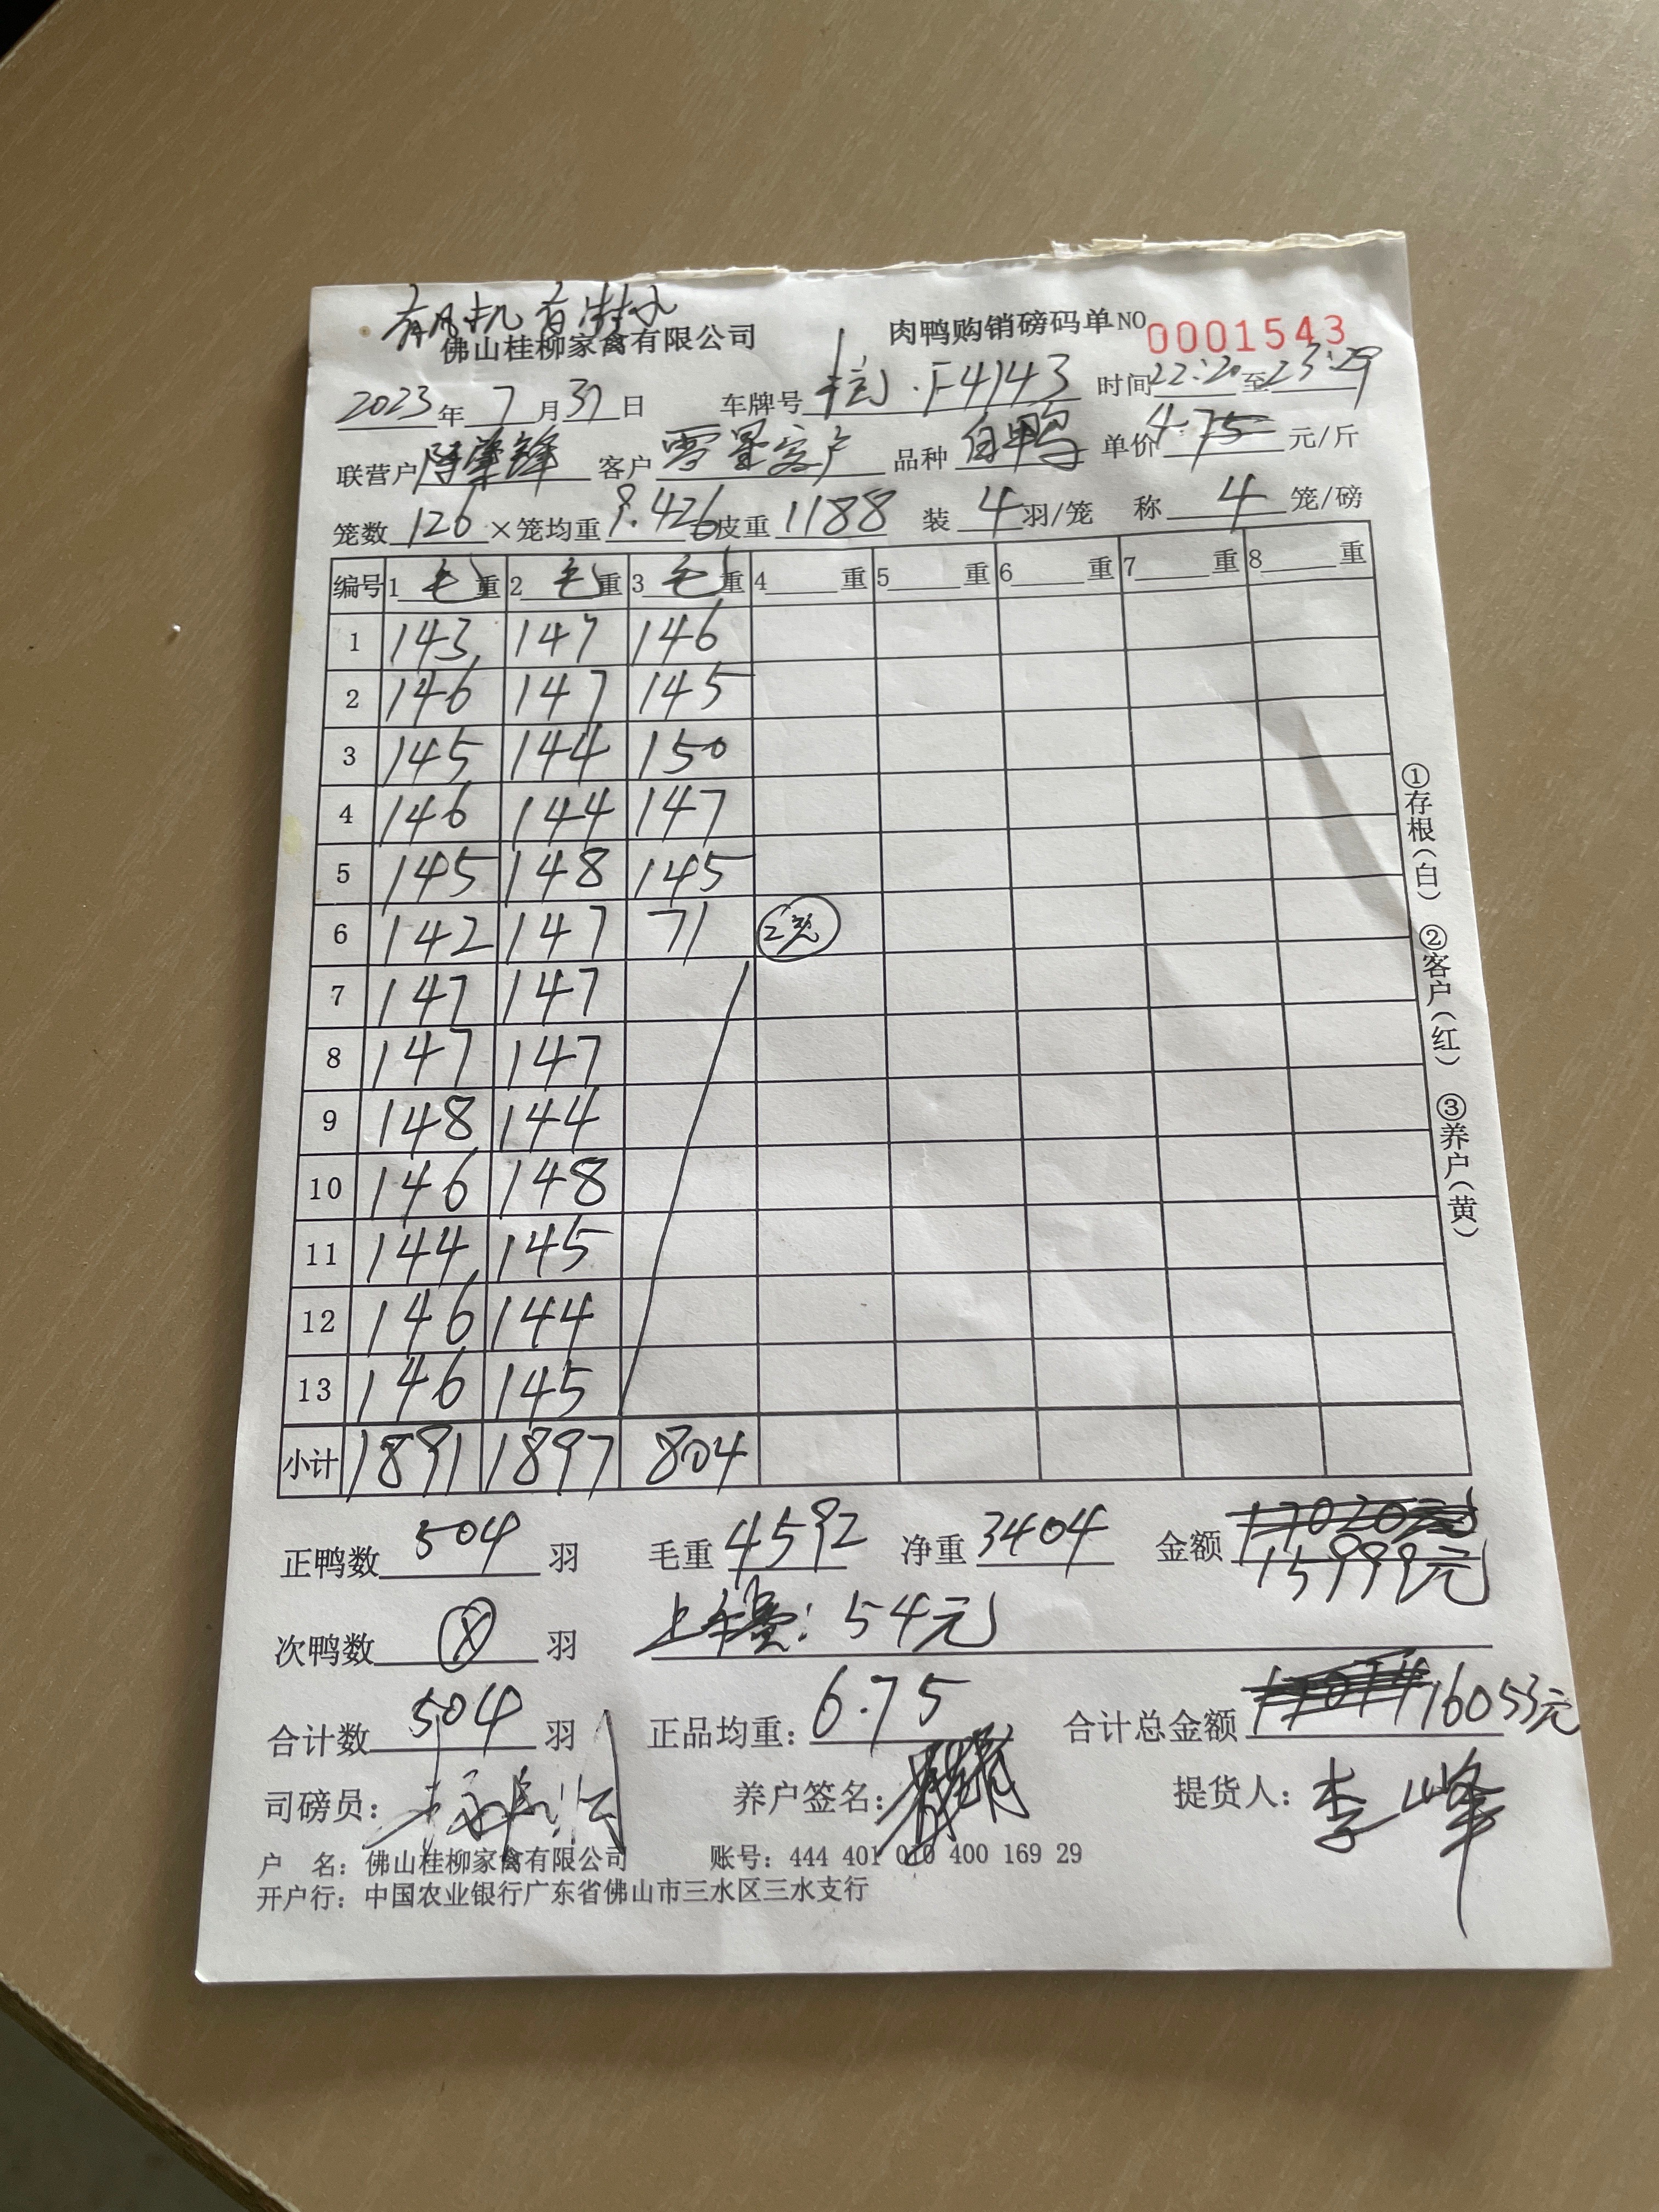 有风机 有淋水
佛山桂柳家禽有限公司 肉鸭购销磅码单 NO 0001543
2023年 7月31日 车牌号 F4143 时间22:20至23:29
联营户 客户 零星客户 品种 白鸭 单价4.75元/斤
笼数 126 ×笼均重 9.426 皮重 1188 装 4 羽/笼 称 4 笼/磅
编号 1 毛重 2 毛重 3 毛重 4 重 5 重 6 重 7 重 8 重
1 143 147 146
2 146 147 145
3 145 144 150
4 146 144 147
5 145 148 145
6 142 147 71
7 147 147
8 147 147
9 148 144
10 146 148
11 144 145
12 146 144
13 146 145
小计 1891 1897 804
正鸭数 504 羽 毛重 4592 净重 3404 金额 17020元
15999元
次鸭数 羽 上车费: 54元
合计数 504 羽 正品均重: 6.75 合计总金额 16053元
司磅员: 养户签名: 提货人: 李峰
户 名: 佛山桂柳家禽有限公司 账号: 444 401 010 400 169 29
开户行: 中国农业银行广东省佛山市三水区三水支行
①存根(白) ②客户(红) ③养户(黄)